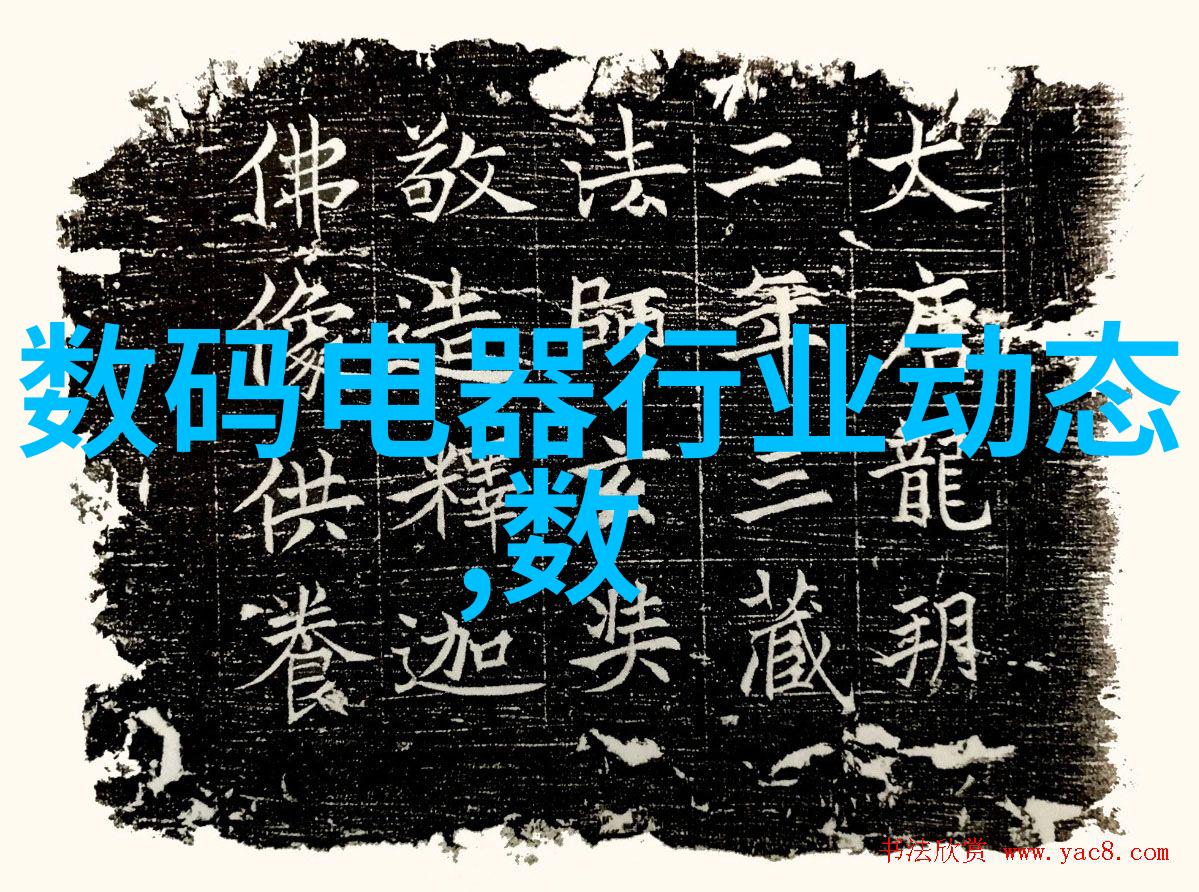 数码电器行业动态
,数
大唐龍朔
二年三藏
法師玄奘
敬造釋迦
佛像供養
书法欣赏 www.yac8.com